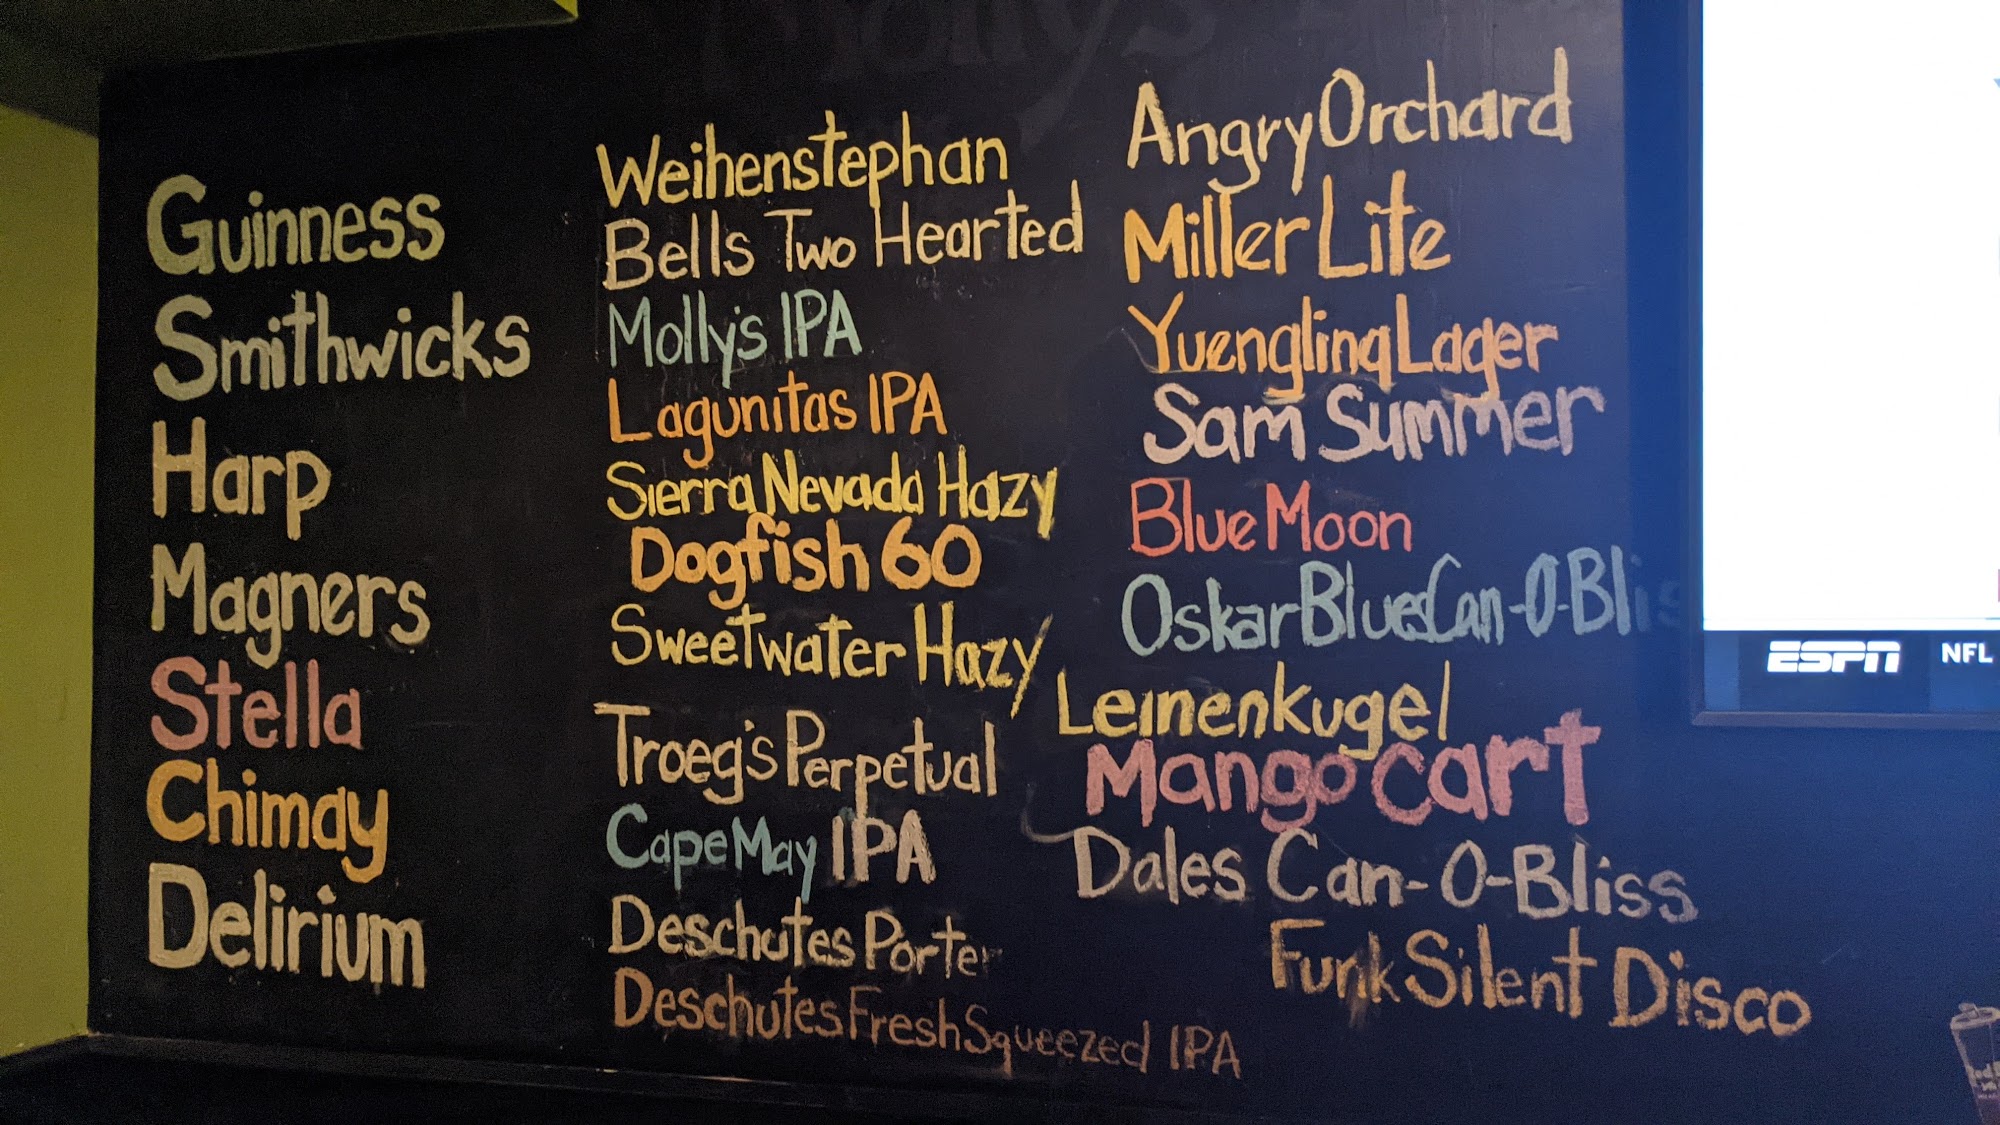 Molly's
Guinness
Smithwicks
Harp
Magners
Stella
Chimay
Delirium
Weihenstephan
Bells Two Hearted
Molly's IPA
Lagunitas IPA
Sierra Nevada Hazy
Dogfish 60
Sweetwater Hazy
Troeg's Perpetual
Cape May IPA
Deschutes Porter
Deschutes Fresh Squeezed IPA
Angry Orchard
Miller Lite
Yuengling Lager
Sam Summer
Blue Moon
Oskar Blues Can-O-Blis
Leinenkugel
Mango Cart
Dales Can-O-Bliss
Funk Silent Disco
ESPN NFL